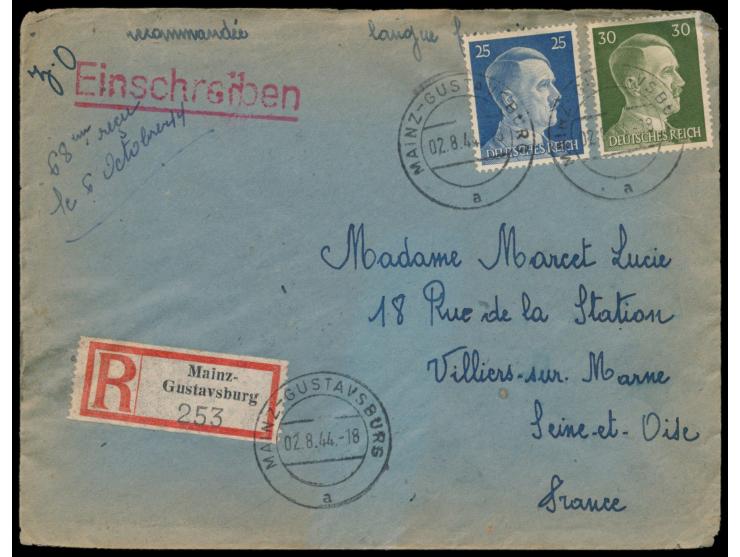 recommandée langue
Einschreiben
68 reçu
le 6 Octobre 44
25 25
DEUTSCHES REICH
30 30
DEUTSCHES REICH
MAINZ-GUSTAVSBURG
02.8.44
a
MAINZ-GUSTAVSBURG
02.8.44.-18
a
Madame Marcet Lucie
18 Rue de la Station
Villiers-sur-Marne
Seine-et-Oise
France
R Mainz-
Gustavsburg
253
MAINZ-GUSTAVSBURG
02.8.44.-18
a